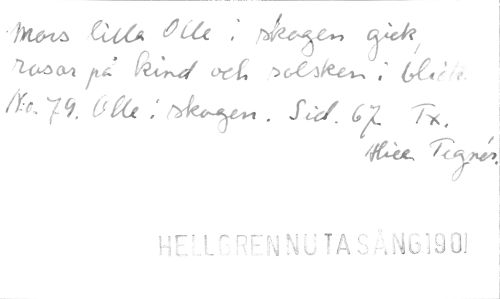 Mors lilla Olle i skogen gick,
rosor på kind och solsken i blick
No. 79. Olle i skogen. Sid. 67 Tx.
Alice Tegnér.
HELLGREN NU TA SÅNG 1901